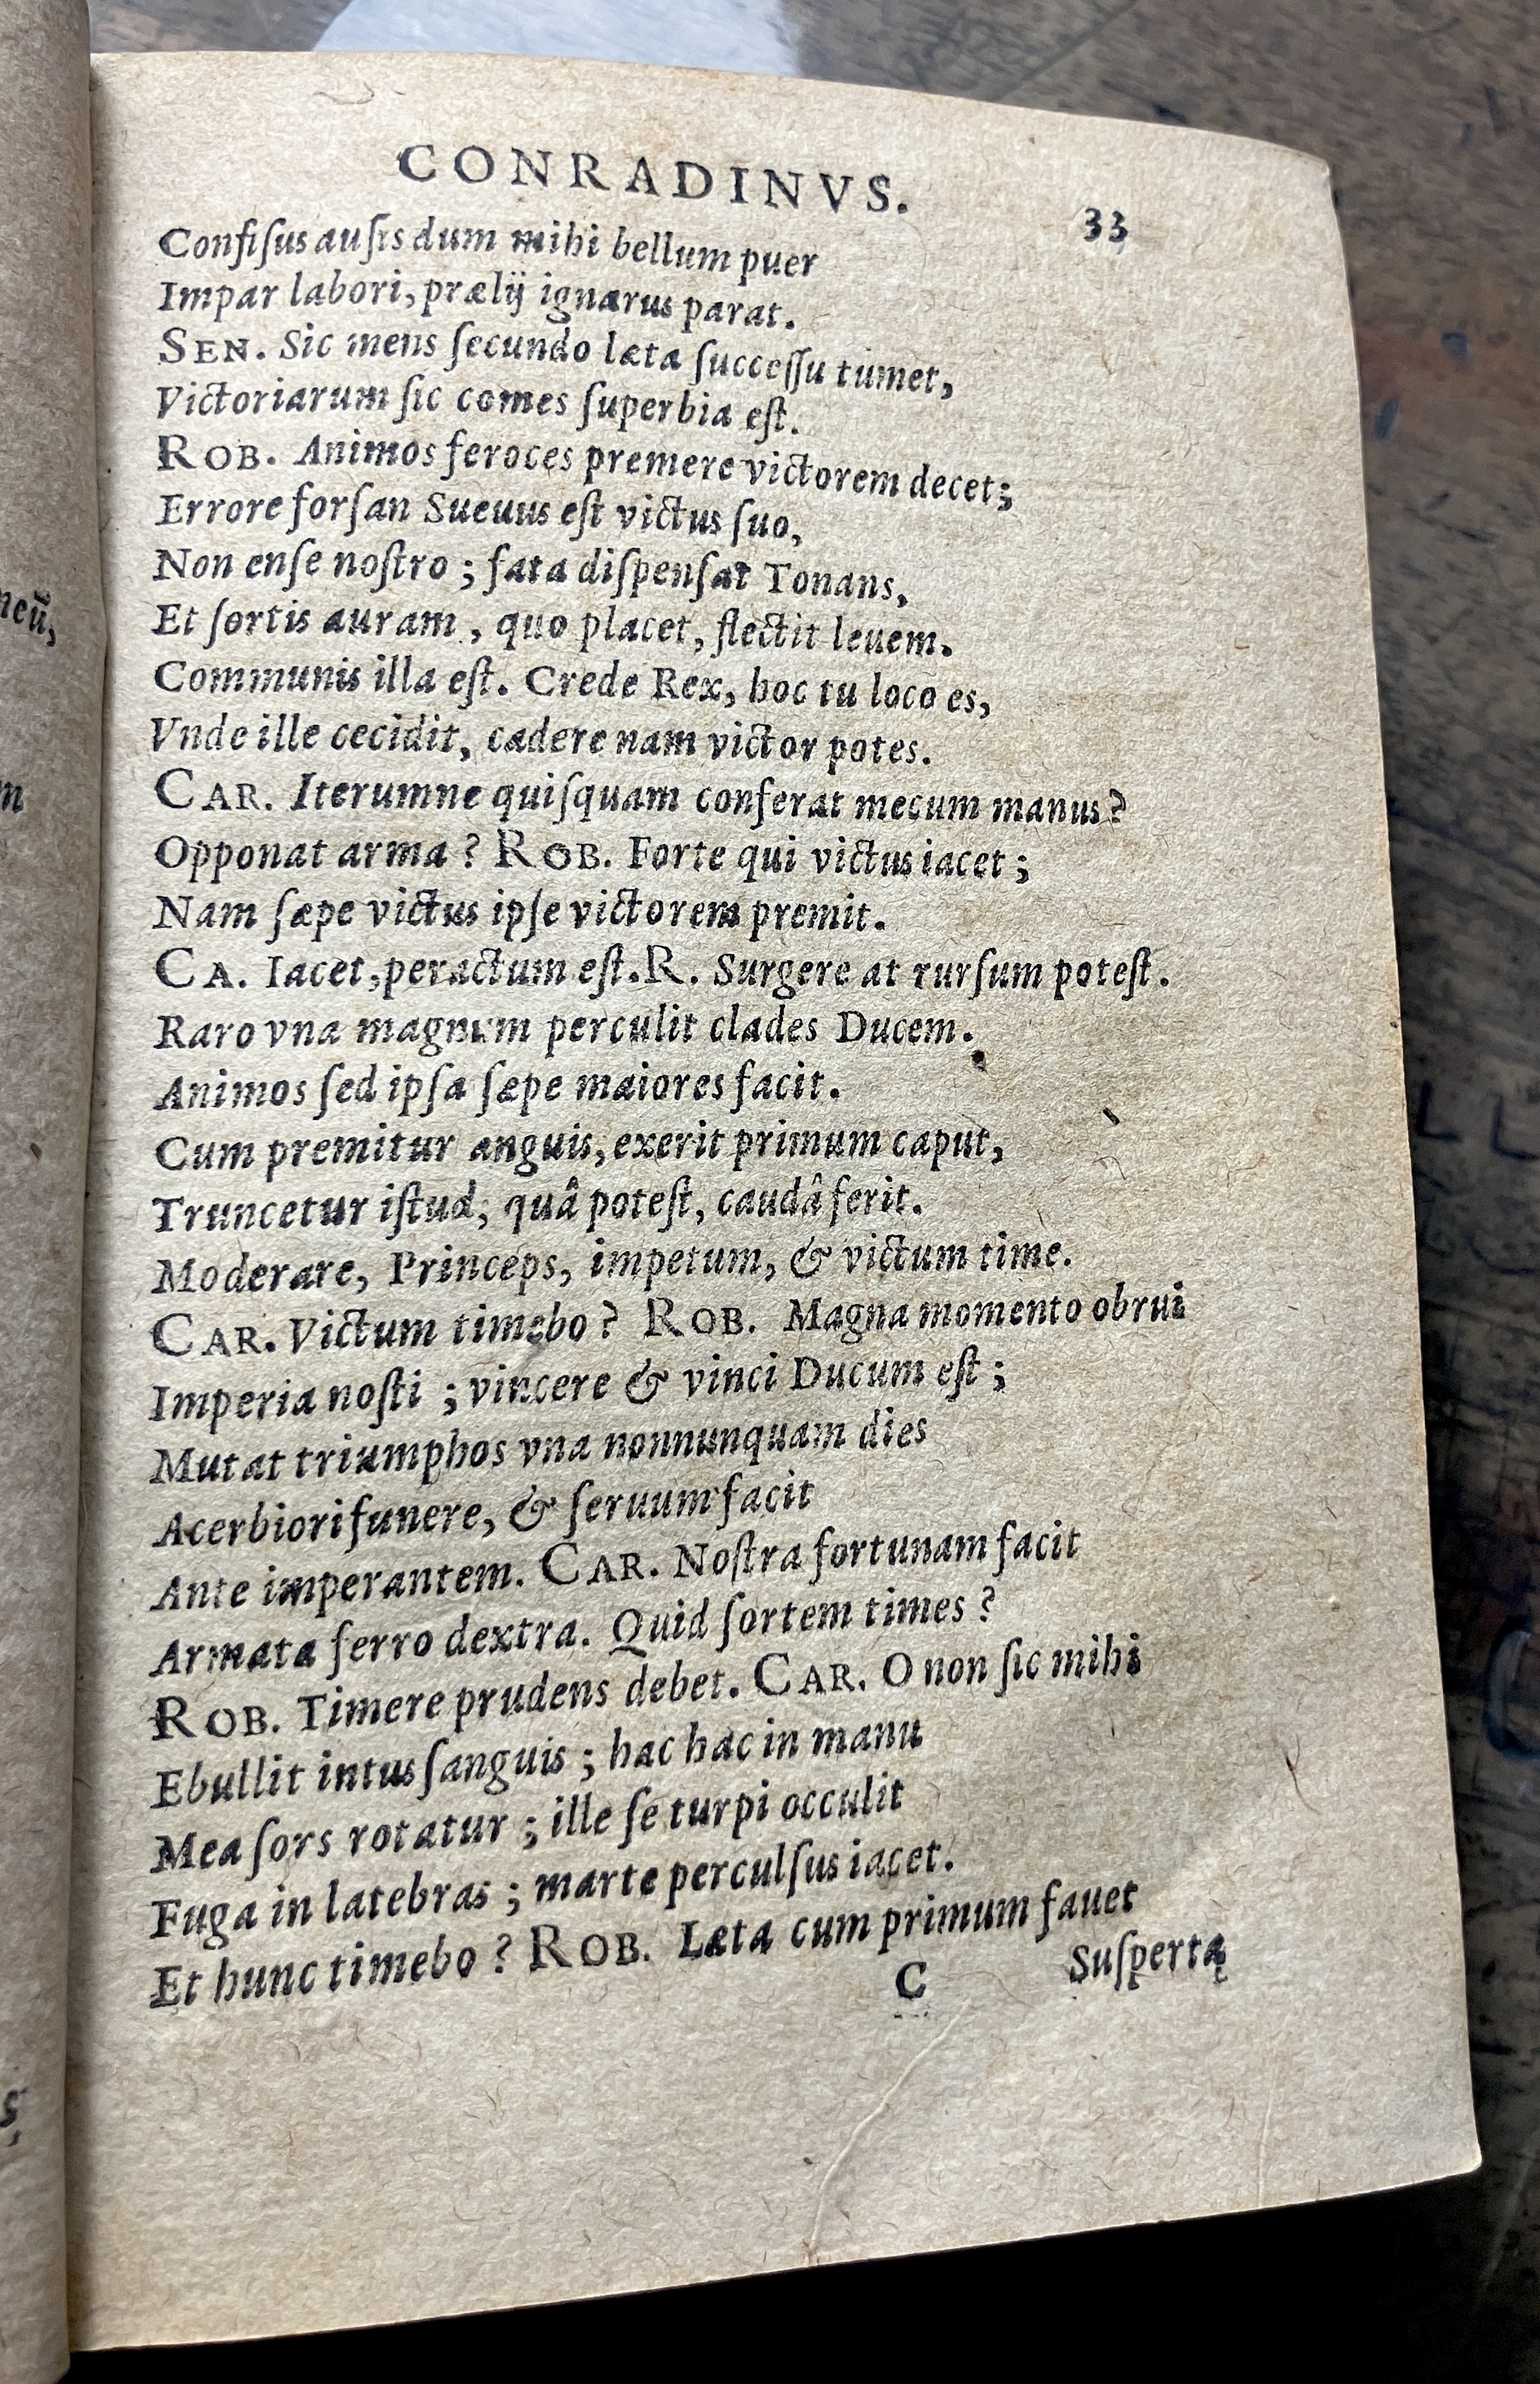 CONRADINVS.
33
Confiſus auſis dum mihi bellum puer
Impar labori, prælij ignarus parat.
SEN. Sic mens ſecundo læta ſucceſſu tumet,
Victoriarum ſic comes ſuperbia eſt.
ROB. Animos feroces premere victorem decet;
Errore forſan Sueuus eſt victus ſuo,
Non enſe noſtro ; fata diſpenſat Tonans,
Et ſortis auram , quo placet, flectit leuem.
Communis illa eſt. Crede Rex, hoc tu loco es,
Vnde ille cecidit, cadere nam victor potes.
CAR. Iterumne quiſquam conferat mecum manus?
Opponat arma ? ROB. Forte qui victus iacet ;
Nam ſæpe victus ipſe victorem premit.
CA. Iacet, peractum eſt. R. Surgere at rurſum poteſt.
Raro vna magnum perculit clades Ducem.
Animos ſed ipſa ſæpe maiores facit.
Cum premitur anguis, exerit primum caput,
Truncetur iſtud, quâ poteſt, caudâ ferit.
Moderare, Princeps, impetum, & victum time.
CAR. Victum timebo ? ROB. Magna momento obrui
Imperia noſti ; vincere & vinci Ducum eſt ;
Mutat triumphos vna nonnunquam dies
Acerbiori funere, & ſeruum facit
Ante imperantem. CAR. Noſtra fortunam facit
Armata ferro dextra. Quid ſortem times ?
ROB. Timere prudens debet. CAR. O non ſic mihi
Ebullit intus ſanguis ; hac hac in manu
Mea ſors rotatur ; ille ſe turpi occulit
Fuga in latebras ; marte perculſus iacet.
Et hunc timebo ? ROB. Læta cum primum fauet
C
Suſpertą
neũ,
m
s,